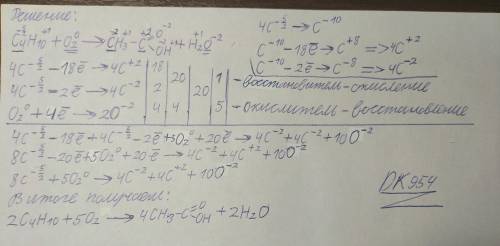 Решение:
C₄^(-5/2)H₁₀^(+1) + O₂⁰ → C^(-2)H₃^(+1)-C^(+2)(=O^(-2))-OH^(+1) + H₂^(+1)O^(-2)
4C^(-5/2) → C^(-10)
C^(-10) - 18ē → C^(+8) => 4C^(+2)
C^(-10) - 2ē → C^(-8) => 4C^(-2)
4C^(-5/2) - 18ē → 4C^(+2) | 18 | 20 | | 1 | - восстановитель-окисление
4C^(-5/2) - 2ē → 4C^(-2) | 2 | | 20
O₂⁰ + 4ē → 2O^(-2) | 4 | 4 | | 5 | - окислитель-восстановление
4C^(-5/2) - 18ē + 4C^(-5/2) - 2ē + 5O₂⁰ + 20ē → 4C^(-2) + 4C^(+2) + 10O^(-2)
8C^(-5/2) - 20ē + 5O₂⁰ + 20ē → 4C^(-2) + 4C^(+2) + 10O^(-2)
8C^(-5/2) + 5O₂⁰ → 4C^(-2) + 4C^(+2) + 10O^(-2)
В итоге получаем:
2C₄H₁₀ + 5O₂ → 4CH₃-C(=O)-OH + 2H₂O
DK954